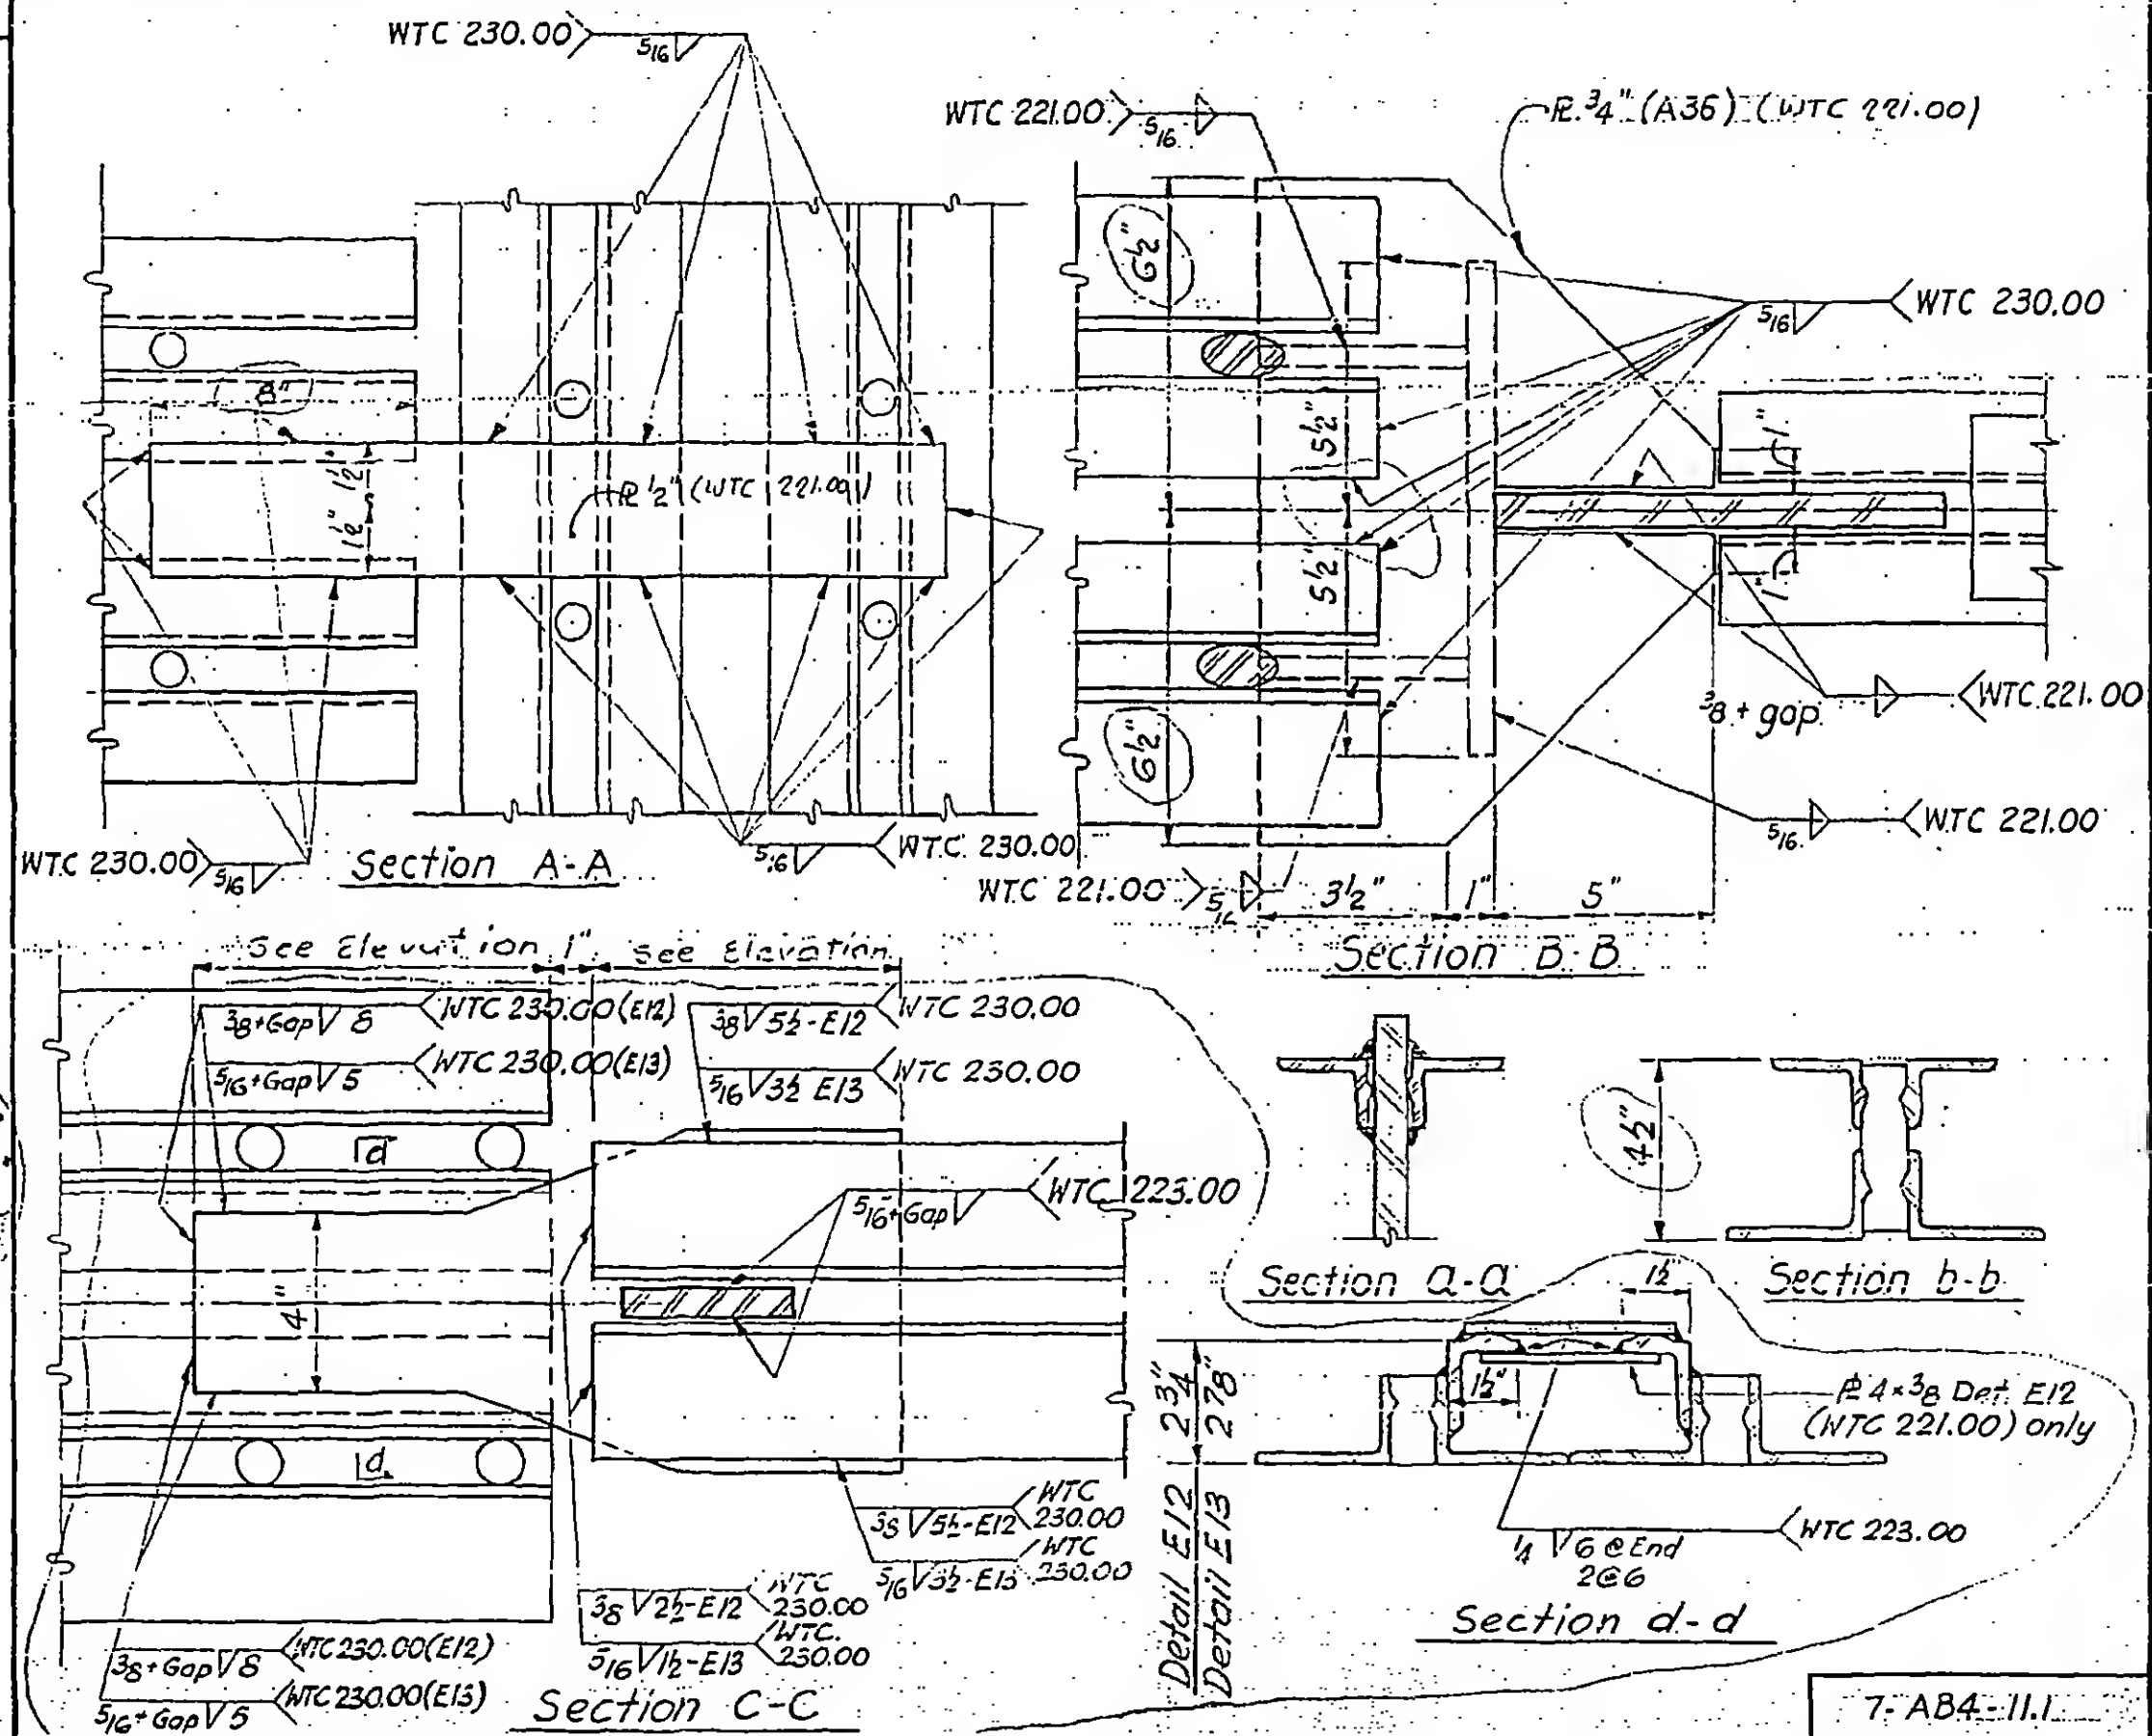 WTC 230.00
5/16
WTC 221.00
5/16
℄ 3/4" (A36) (WTC 221.00)
6½"
5/16
WTC 230.00
8"
5½"
1"
1½"
1½"
℄ ½" (WTC 221.00)
5½"
1"
3/8 + gap
WTC 221.00
6½"
5/16
WTC 221.00
WTC 230.00
5/16
Section A-A
5/16
WTC 230.00
WTC 221.00
5/16
3½"
1"
5"
Section B-B
See Elevation
1"
See Elevation
3/8+Gap 8
WTC 230.00 (E12)
5/16+Gap 5
WTC 230.00 (E13)
3/8 5½-E12
WTC 230.00
5/16 3½ E13
WTC 230.00
d
4½"
5/16+Gap
WTC 223.00
4"
Section a-a
1½"
Section b-b
2¾"
2⅞"
1½"
℄ 4×3/8 Det. E12
(WTC 221.00) only
d
3/8 5½-E12
WTC
230.00
5/16 3½-E13
WTC
230.00
Detail E12
Detail E13
¼ 6 @ End
2@6
WTC 223.00
3/8 2½-E12
WTC
230.00
5/16 1½-E13
WTC
230.00
Section d-d
3/8+Gap 8
WTC 230.00 (E12)
5/16+Gap 5
WTC 230.00 (E13)
Section C-C
7-AB4-11.1